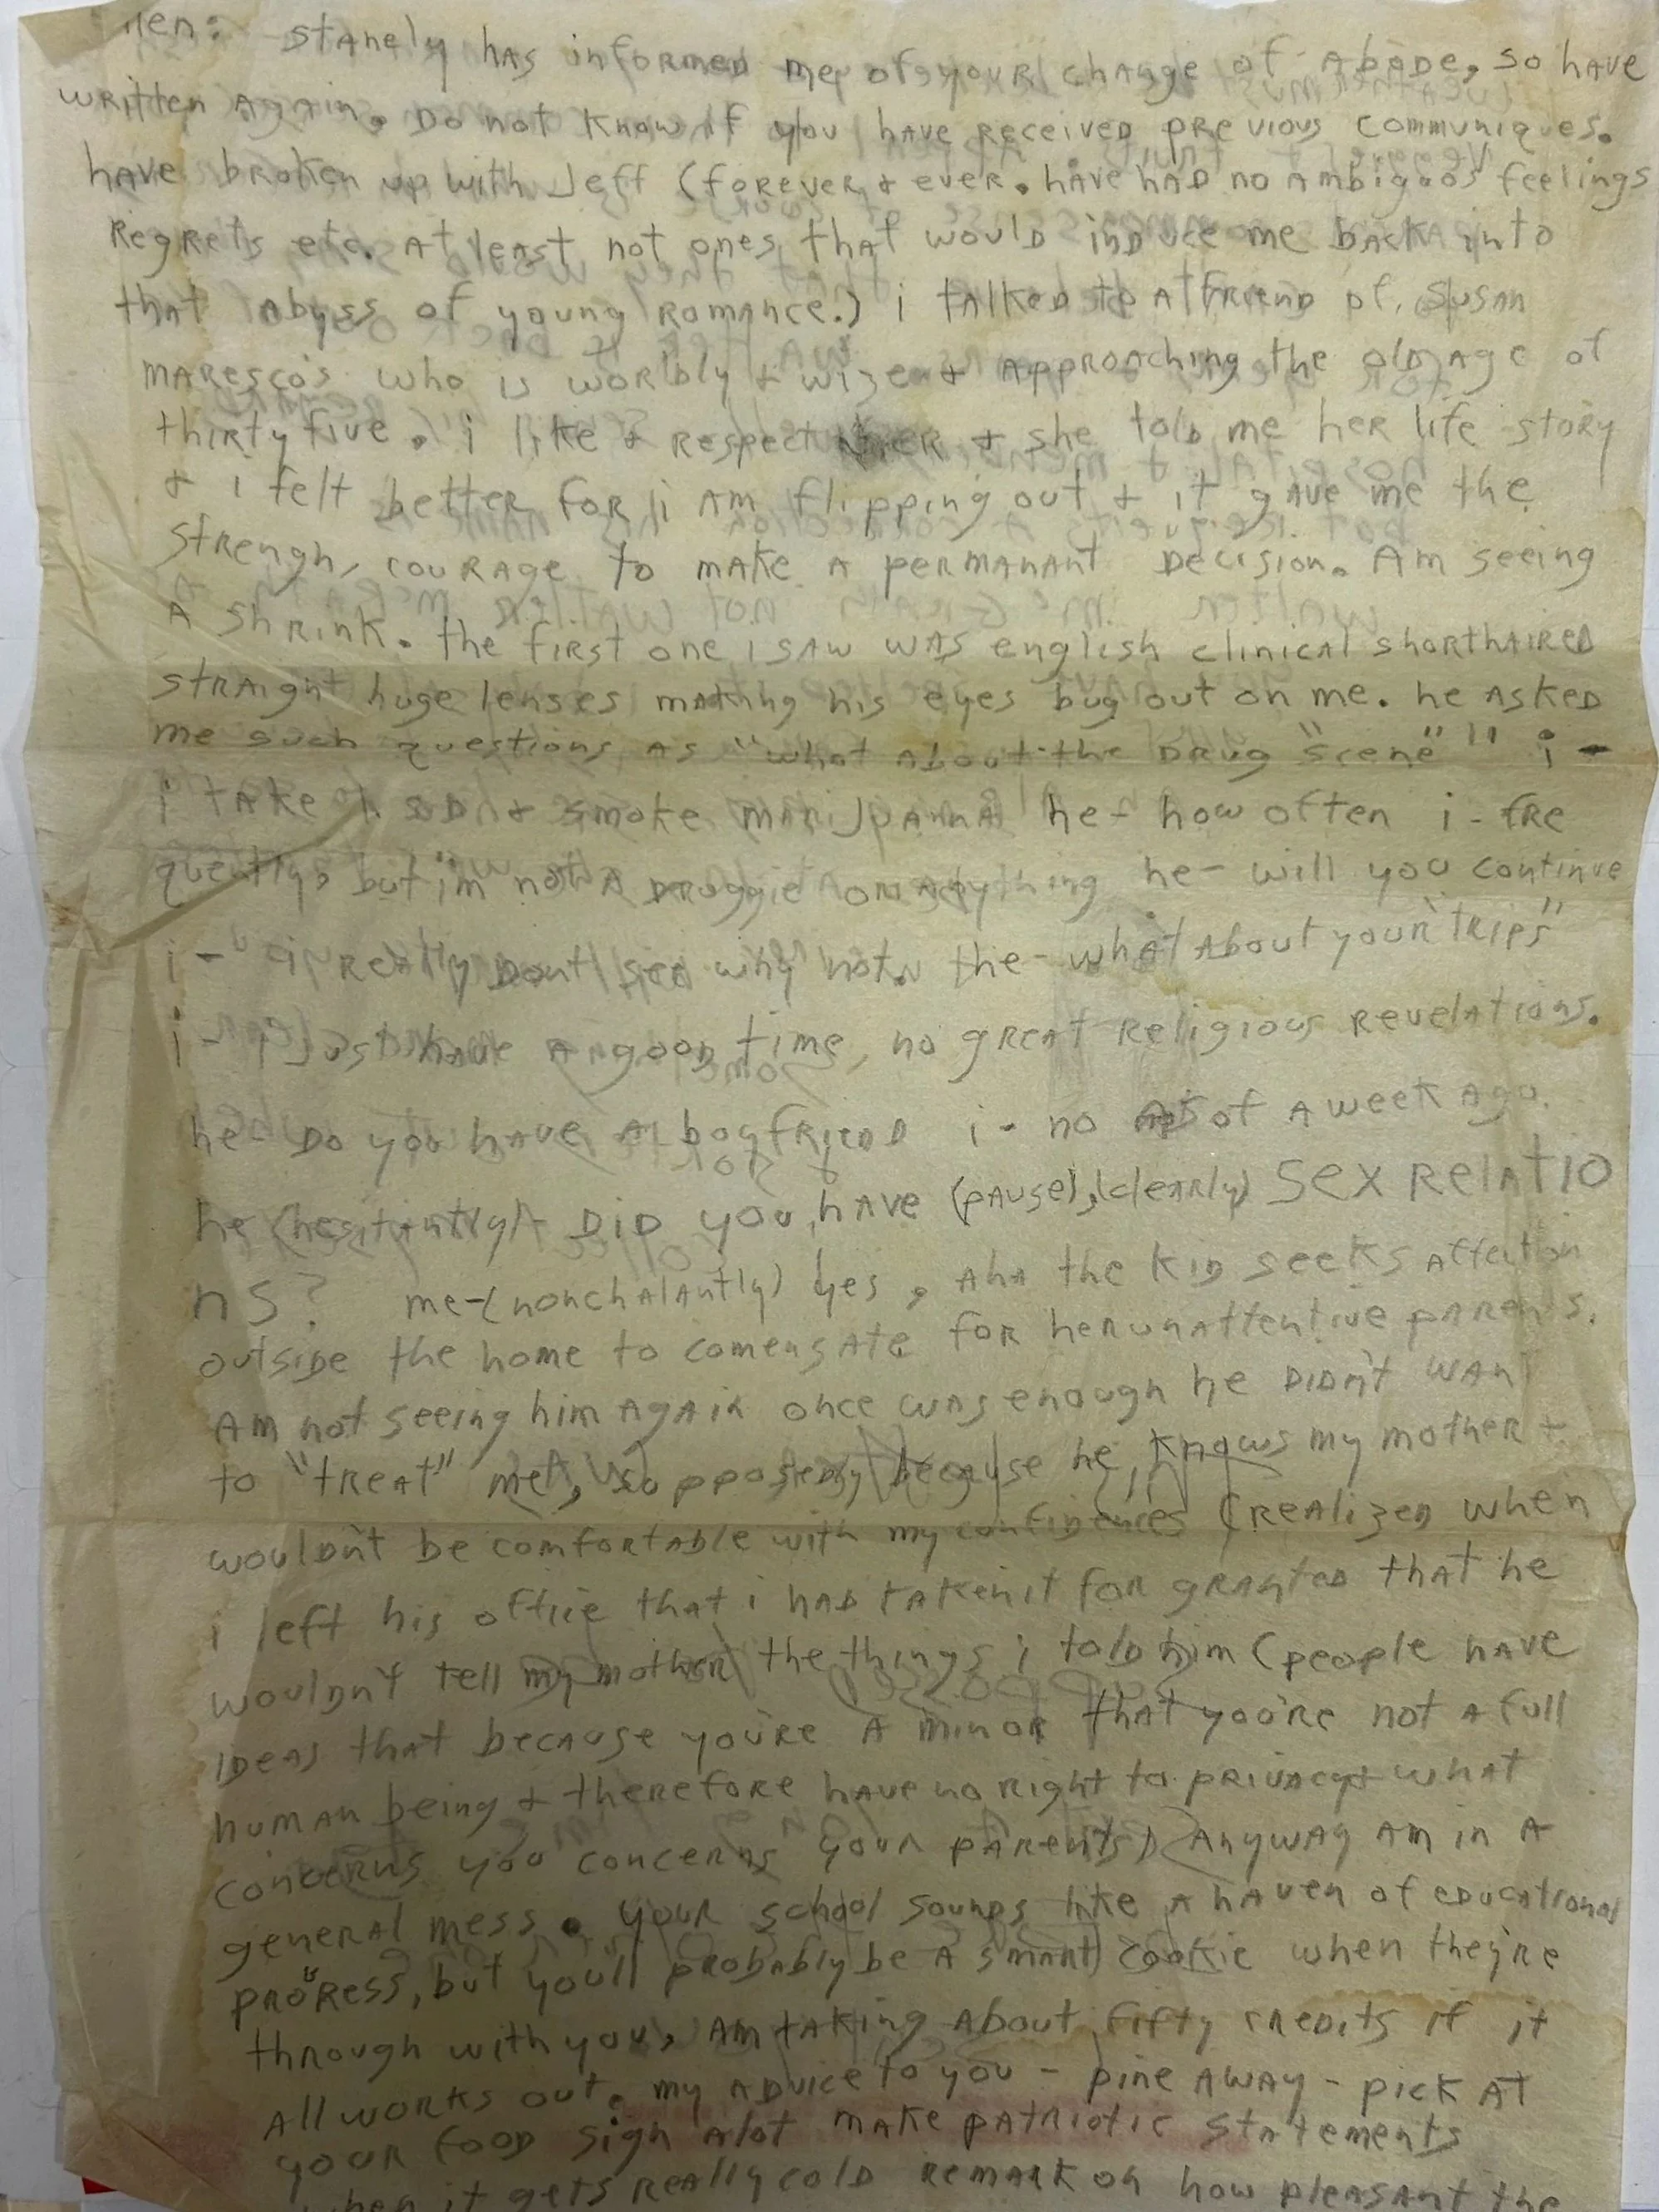 Stanely has informed me of your change of abode, so have
written again. Do not know if you have received previous communiques.
have broken up with Jeff (forever & ever. have had no ambiguos feelings
Regrets etc. At least not ones that would induce me back into
that abyss of young romance.) i talked to a friend of, Susan
maresco's who is worldly & wize & approaching the old age of
thirty five. i like & respect her & she told me her life story
& i felt better for i am flipping out & it gave me the
strengh, courage to make a permanant decision. Am seeing
a shrink. the first one i saw was english clinical shorthaired
straight huge lenses making his eyes bug out on me. he asked
me such questions as "what about the drug "scene"" i -
i take LSD & smoke marijuanna he - how often i - fre
quently, but i'm not a druggie or anything he - will you continue
i - i really dont see why not. he - what about your "trips"
i - i just have a good time, no great religious revelations.
he - Do you have a boyfriend i - no as of a week ago.
he (hesitantly) - DiD you have (pause), (clearly) Sex Relatio
ns? me - (nonchalantly) yes, aha the kid seeks affection
outside the home to comensate for her unattentive parents.
Am not seeing him again once was enough he didn't want
to "treat" me, supposedly because he knows my mother &
wouldn't be comfortable with my confidences (realized when
i left his office that i had taken it for granted that he
wouldn't tell my mother the things i told him (people have
ideas that because you're a minor that you're not a full
human being & therefore have no right to privacy & what
concerns you concerns your parents) Anyway am in a
general mess. your school sounds like a haven of educational
progress, but you'll probably be a smart cookie when they're
through with you, Am taking about fifty credits if it
all works out. my advice to you - pine away - pick at
your food sigh alot make patriotic statements
when it gets really cold remark on how pleasant the